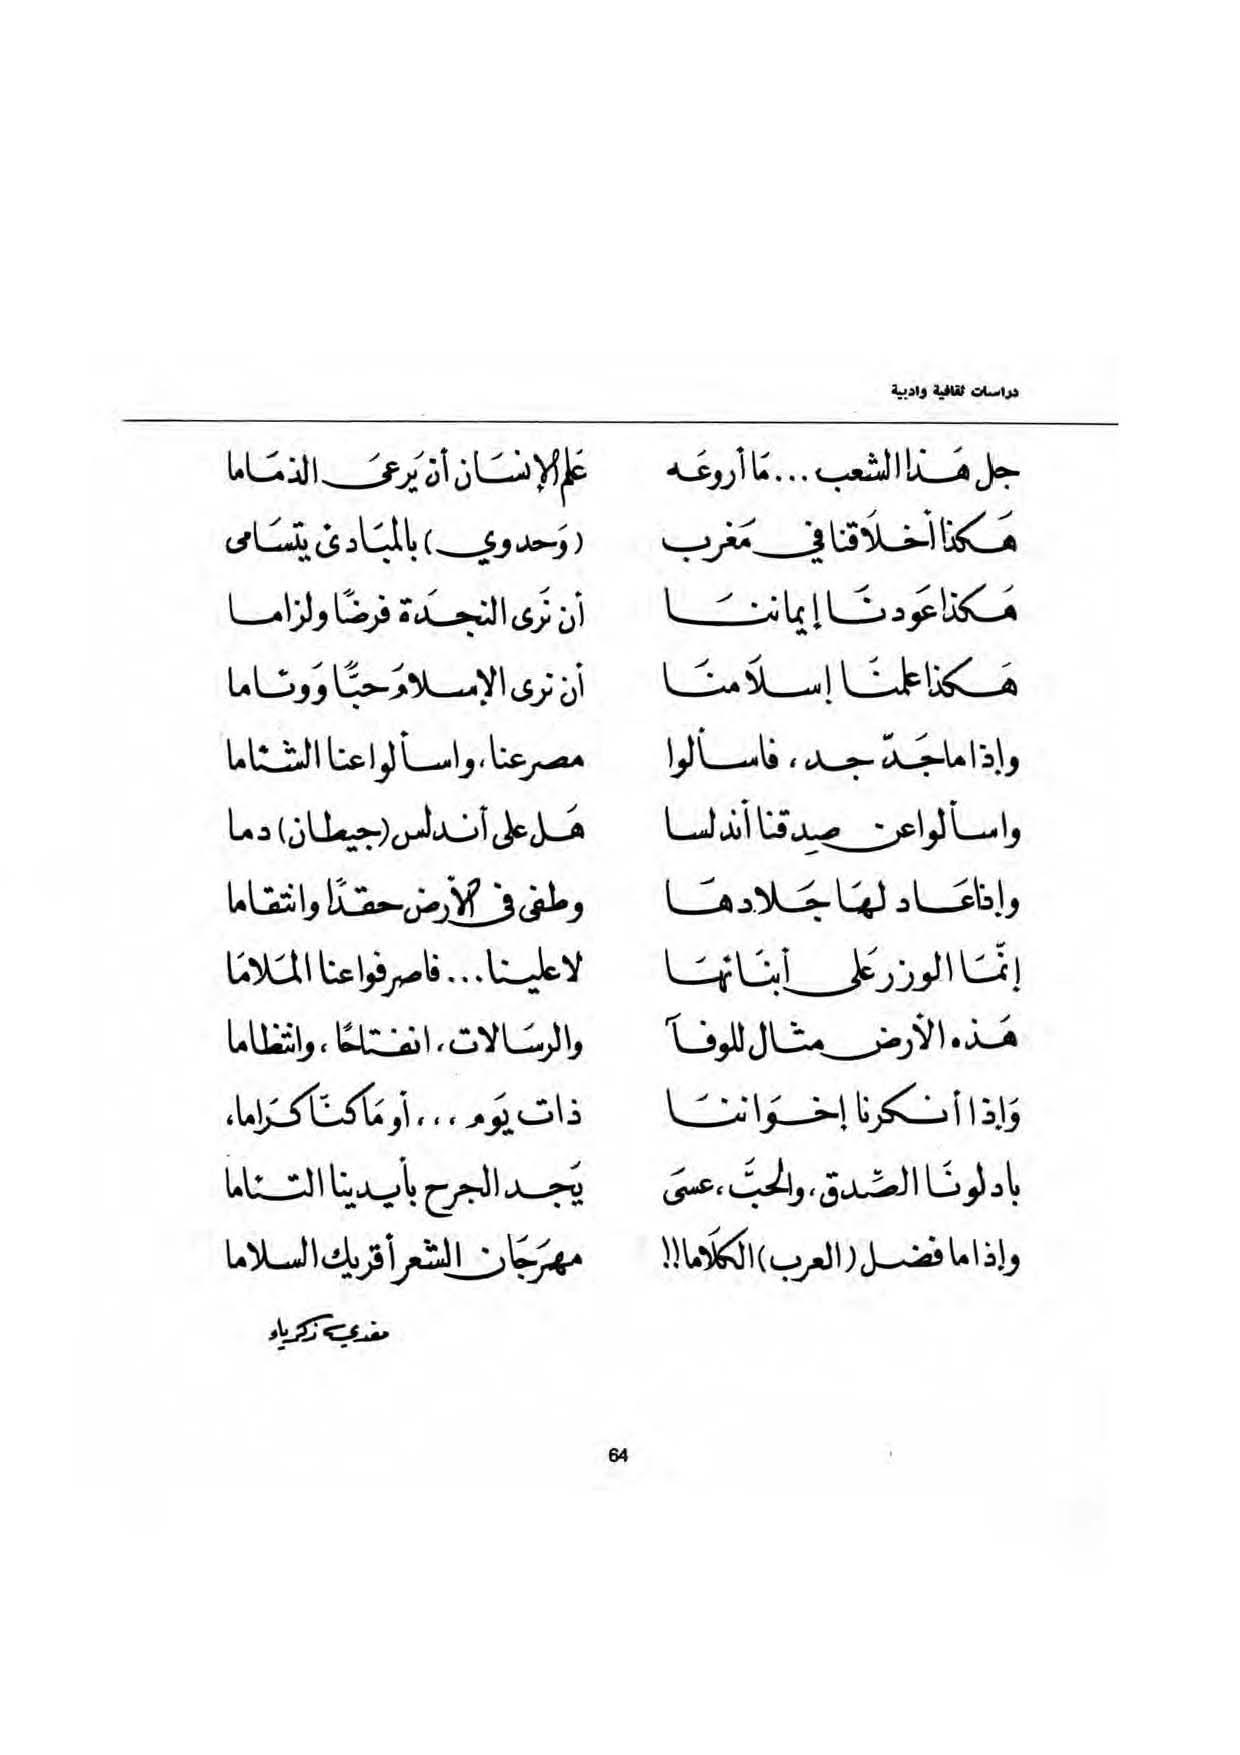 دراسات ثقافية وادبية
جل هَذا الشعب ... مَا أروعَه عَلم الإنسَان أن يَرعىَ الذمَاما
هَكذا أخلاَقنا في مَغرب (وَحدوي) بالمبَادئ يتسَامى
هَكذا عَودنَا إيماننَا أن نَرى النجدَة فرضًا ولزاما
هَكذا علمنَا إسلاَمنَا أن نرى الإسلامَ حبًّا وَوئاما
وإذا ما جَدّ جد، فاسألوا مصرعنا، واسألوا عنا الشئاما
واسألوا عن صِدقنا أندلسا هَل على أندلس (جيطان) دما
وإذا عَاد لهَا جَلادهَا وطفى في الأرض حقدًا وانتقاما
إنّمَا الوزر عَلى أبنَائهَا لا علينا ... فاصرفوا عنا المَلامَا
هَذه الأرض مثال للوفآ والرسَالات، انفتاحًا، وانتظاما
وَإذا أنكرنا إخوَاننَا ذات يَوم ... أو مَا كنّا كرَاما،
بادلونَا الصِّدق، والحبَّ، عسىَ يَجد الجرح بأيدينا التئاما
وإذا ما فضل (العرب) الكلاَما!! مهرَجَان الشعر أقريك السلاما
مفدي زكرياء
64